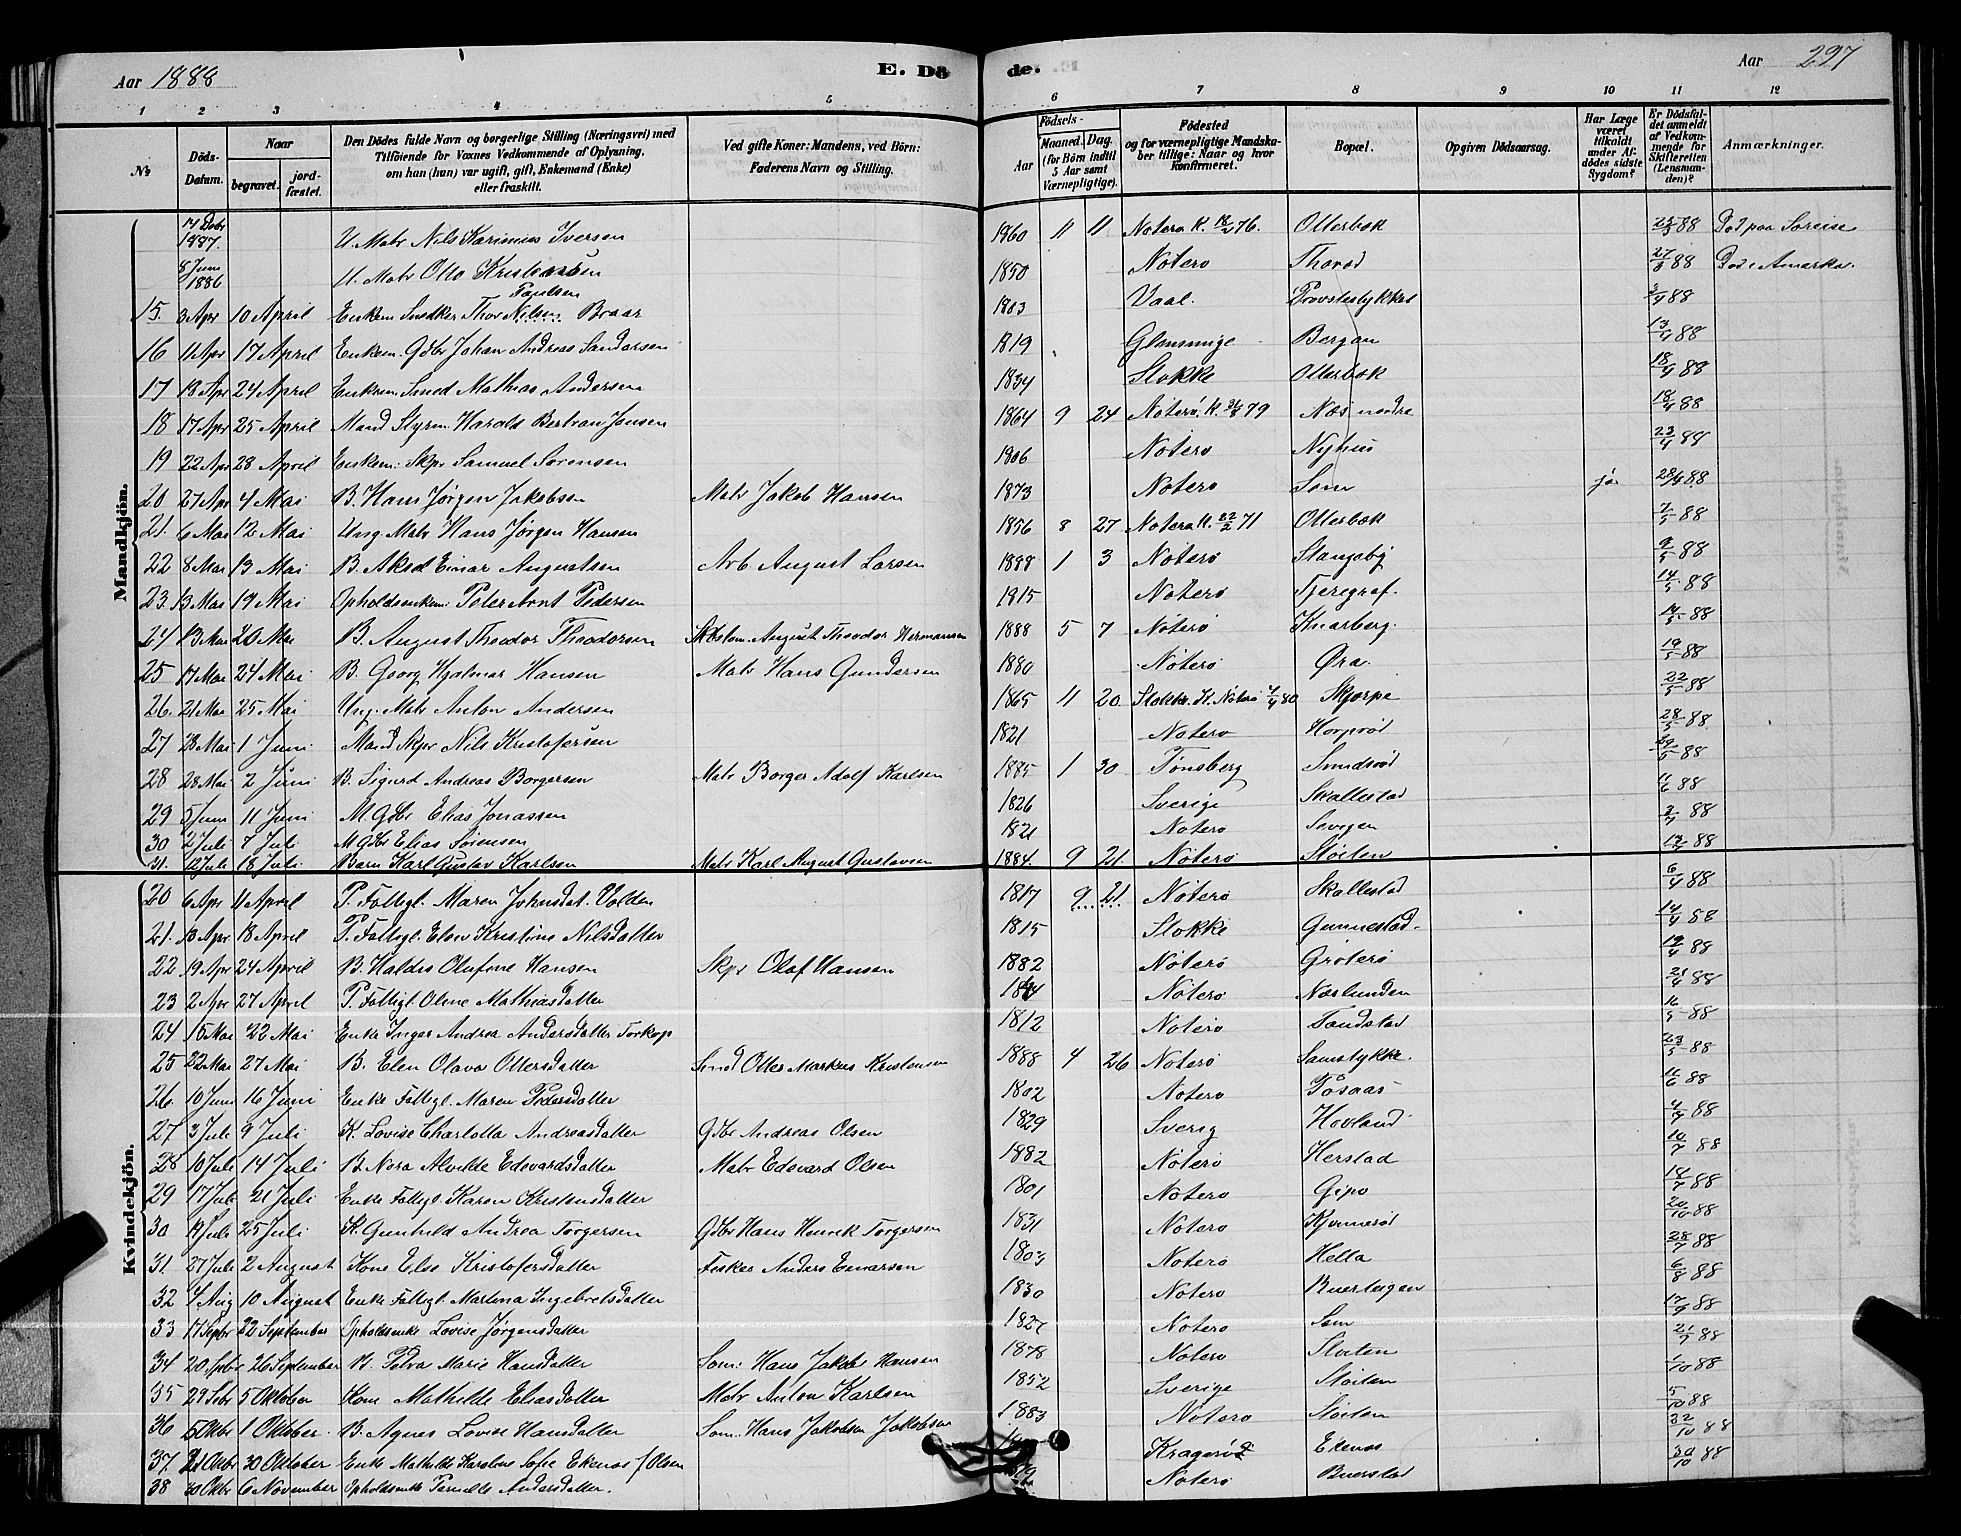 Aar 1888 E. Dö de. Aar 297
1 2 3 4 5 6 7 8 9 10 11 12
№ Döds-Datum. Naar begravet. jordfæstet. Den Dödes fulde Navn og borgerlige Stilling (Næringsvei) med Tilföiende for Voxnes Vedkommende af Oplysning, om han (hun) var ugift, gift, Enkemand (Enke) eller fraskilt. Ved gifte Koner: Mandens, ved Börn: Faderens Navn og Stilling. Födsels- Aar Maaned. Dag. (for Börn indtil 5 Aar samt Værnepligtige). Födested og for værnepligtige Mandskaber tillige: Naar og hvor Konfirmeret. Bopæl. Opgiven Dödsaarsag. Har Læge været tilkaldt under Afdödes sidste Sygdom? Er Dödsfaldet anmeldt af Vedkommende for Skifteretten (Lensmanden)? Anmærkninger.
Mandkjön.
14 Debr 1887 U. Matr Nils Karinius Iversen 1860 11 11 Noterø K. 76. Otterbæk 88 Død paa Søreise
8 Juni 1886 U. Matr Otto Kristensen 1850 Nøterø Thorød 27/3 88 Død i Amerka.
15 3 Apr 10 April Enkem Snedker Thor Nilsen Paulsen Braar 1803 Vaal. Provstestykket 3/4 88
16 11 Apr 17 April Enkem. Gdbr Johan Andreas Andersen 1819 Glemminge Bergan 13/4 88
17 13 Apr 24 April Enkem Smed Mathias Andersen 1834 Stokke Otterbæk 18/4 88
18 17 Apr 25 April Mand Styrm. Harald Bertran Jansen 1864 9 24 Nøterø. K. 79 Næs nedre 18/4 88
19 22 Apr 28 April Enkem: Skpr Samuel Sørensen 1806 Nøterø Nyhus 23/4 88
20 27 Apr 4 Mai B. Hans Jørgen Jakobsen Matr Jakob Hansen 1873 Nøterø Sem ja 28/4 88
21. 6 Mai 12 Mai Ung. Matr Hans Jørgen Hansen 1856 8 27 Nøterø K. 71 Otterbæk 7/5 88
22 8 Mai 13 Mai B. Aksel Einar Augustsen Arb August Larsen 1888 1 3 Nøterø Stangeby 9/5 88
23. 13 Mai 19 Mai Opholdsenkem: Peter Arnt Pedersen 1815 Nøterø Fjeregraf. 14/5 88
24 13 Mai 20 Mai B. August Theodor Theodorsen Skbstøm. August Theodor Hermansen 1888 5 7 Nøterø Knarberg. 14/5 88
25 17 Mai 24 Mai B. Georg Hjalmar Hansen Matr Hans Gundersen 1880 Nøterø Øra 19/5 88
26. 21 Mai 25 Mai Ung. Matr Anton Andersen 1865 11 20 Stokke. K. Nøterø 80 Skjerpe 22/5 88
27 28 Mai 1 Juni Mand Skpr Nils Kristofersen 1821 Nøterø Horperød 28/5 88
28 28 Mai 2 Juni B. Sigurd Andreas Borgersen Matr Borger Adolf Karlsen 1885 1 30 Tønsberg Smidsrød 29/5 88
29 5 Juni 11 Juni M. Gdbr Elias Jonassen 1826 Sverige Skallestad 11/6 88
30 2 Juli 7 Juli M. Gdbr Elias Sørensen 1821 Nøterø 88
31. 12 Juli 18 Juli Barn Karl Gustav Karlsen Matr Karl August Gustavsen 1884 9 21. Nøterø Støiten 88
Kvindekjön.
20 6 Apr 11 April P. Fattigl. Maren Johnsdat. Volden 1817 9 21 Nøterø Skallestad 6/4 88
21. 13 Apr 18 April P. Fattigl. Elen Kristine Nilsdatter 1815 Stokke Gunnestad. 14/4 88
22 19 Apr 24 April B. Haldis Olufine Hansen Skpr Olaf Hansen 1882 Nøterø Grøterø 88
23 2 Apr 27 April P. Fattigl. Oline Mathiasdatter Nøterø Nærlunden 88
24 15 Mai 22 Mai Enke Inger Andrea Andersdatter Torkop 1812 Nøterø Tandstad 16/5 88
25 22 Mai 27 Mai B. Elen Olava Ottersdatter Smd Otter Markus Kristensen 1888 4 26 Nøterø Samstykke. 23/5 88
26. 10 Juni 16 Juni Enke Fattigl. Maren Pedersdatter 1802 Nøterø 11/6 88
27 3 Juli 9 Juli K. Lovise Charlotta Andreasdatter Gdbr Andreas Olsen 1829 Sverig Hovland 4/7 88
28 10 Juli 14 Juli B. Nora Alvilde Edevardsdatter Matr Edevard Olsen 1882 Nøterø Herstad 88
29 17 Juli 21 Juli Enke Fattigl. Karen Kristensdatter 1801 Nøterø Gipø 18/7 88
30 Juli 25 Juli K. Gunhild Andrea Torgersen Gdbr Hans Henrik Torgersen 1831 Nøterø Kjønnerød 88
31. 27 Juli 2 August Kone Else Kristofersdatter Fisker Anders Einarsen 1803 Nøterø Hella 28/7 88
32 4 Aug 10 August Enke Fattigl. Martina Ingebretsdatter 1830 Nøterø Buerstugen 6/8 88
33 17 Septbr 22 September Opholdsenke Lovise Jørgensdatter 1827 Nøterø Sem 17/9 88
34 20 Spbr 26 September B. Petra Marie Hansdatter Søm: Hans Jakob Hansen 1878 Nøterø Støiten 21/9 88
35 29 Sebr 5 Oktober Kone Mathilde Eliasdatter Matr Anton Karlsen 1852 Sverige Støiten 1/10 88
36 5 Oktbr 1 Oktober. B. Agnes Lovise Hansdatter Søm. Hans Jakobsen Jakobsen 1883 Nøterø Støiten 5/10 88
37. 21 Oktbr 30 Oktober Enke Mathilde Karoline Sofie Ekenæs f. Olsen Kragerø Ekenæs 88
38 30 Oktbr 6 November Opholdsenke Pernelle Andersdatter. Nøterø Buerstad 30/10 88